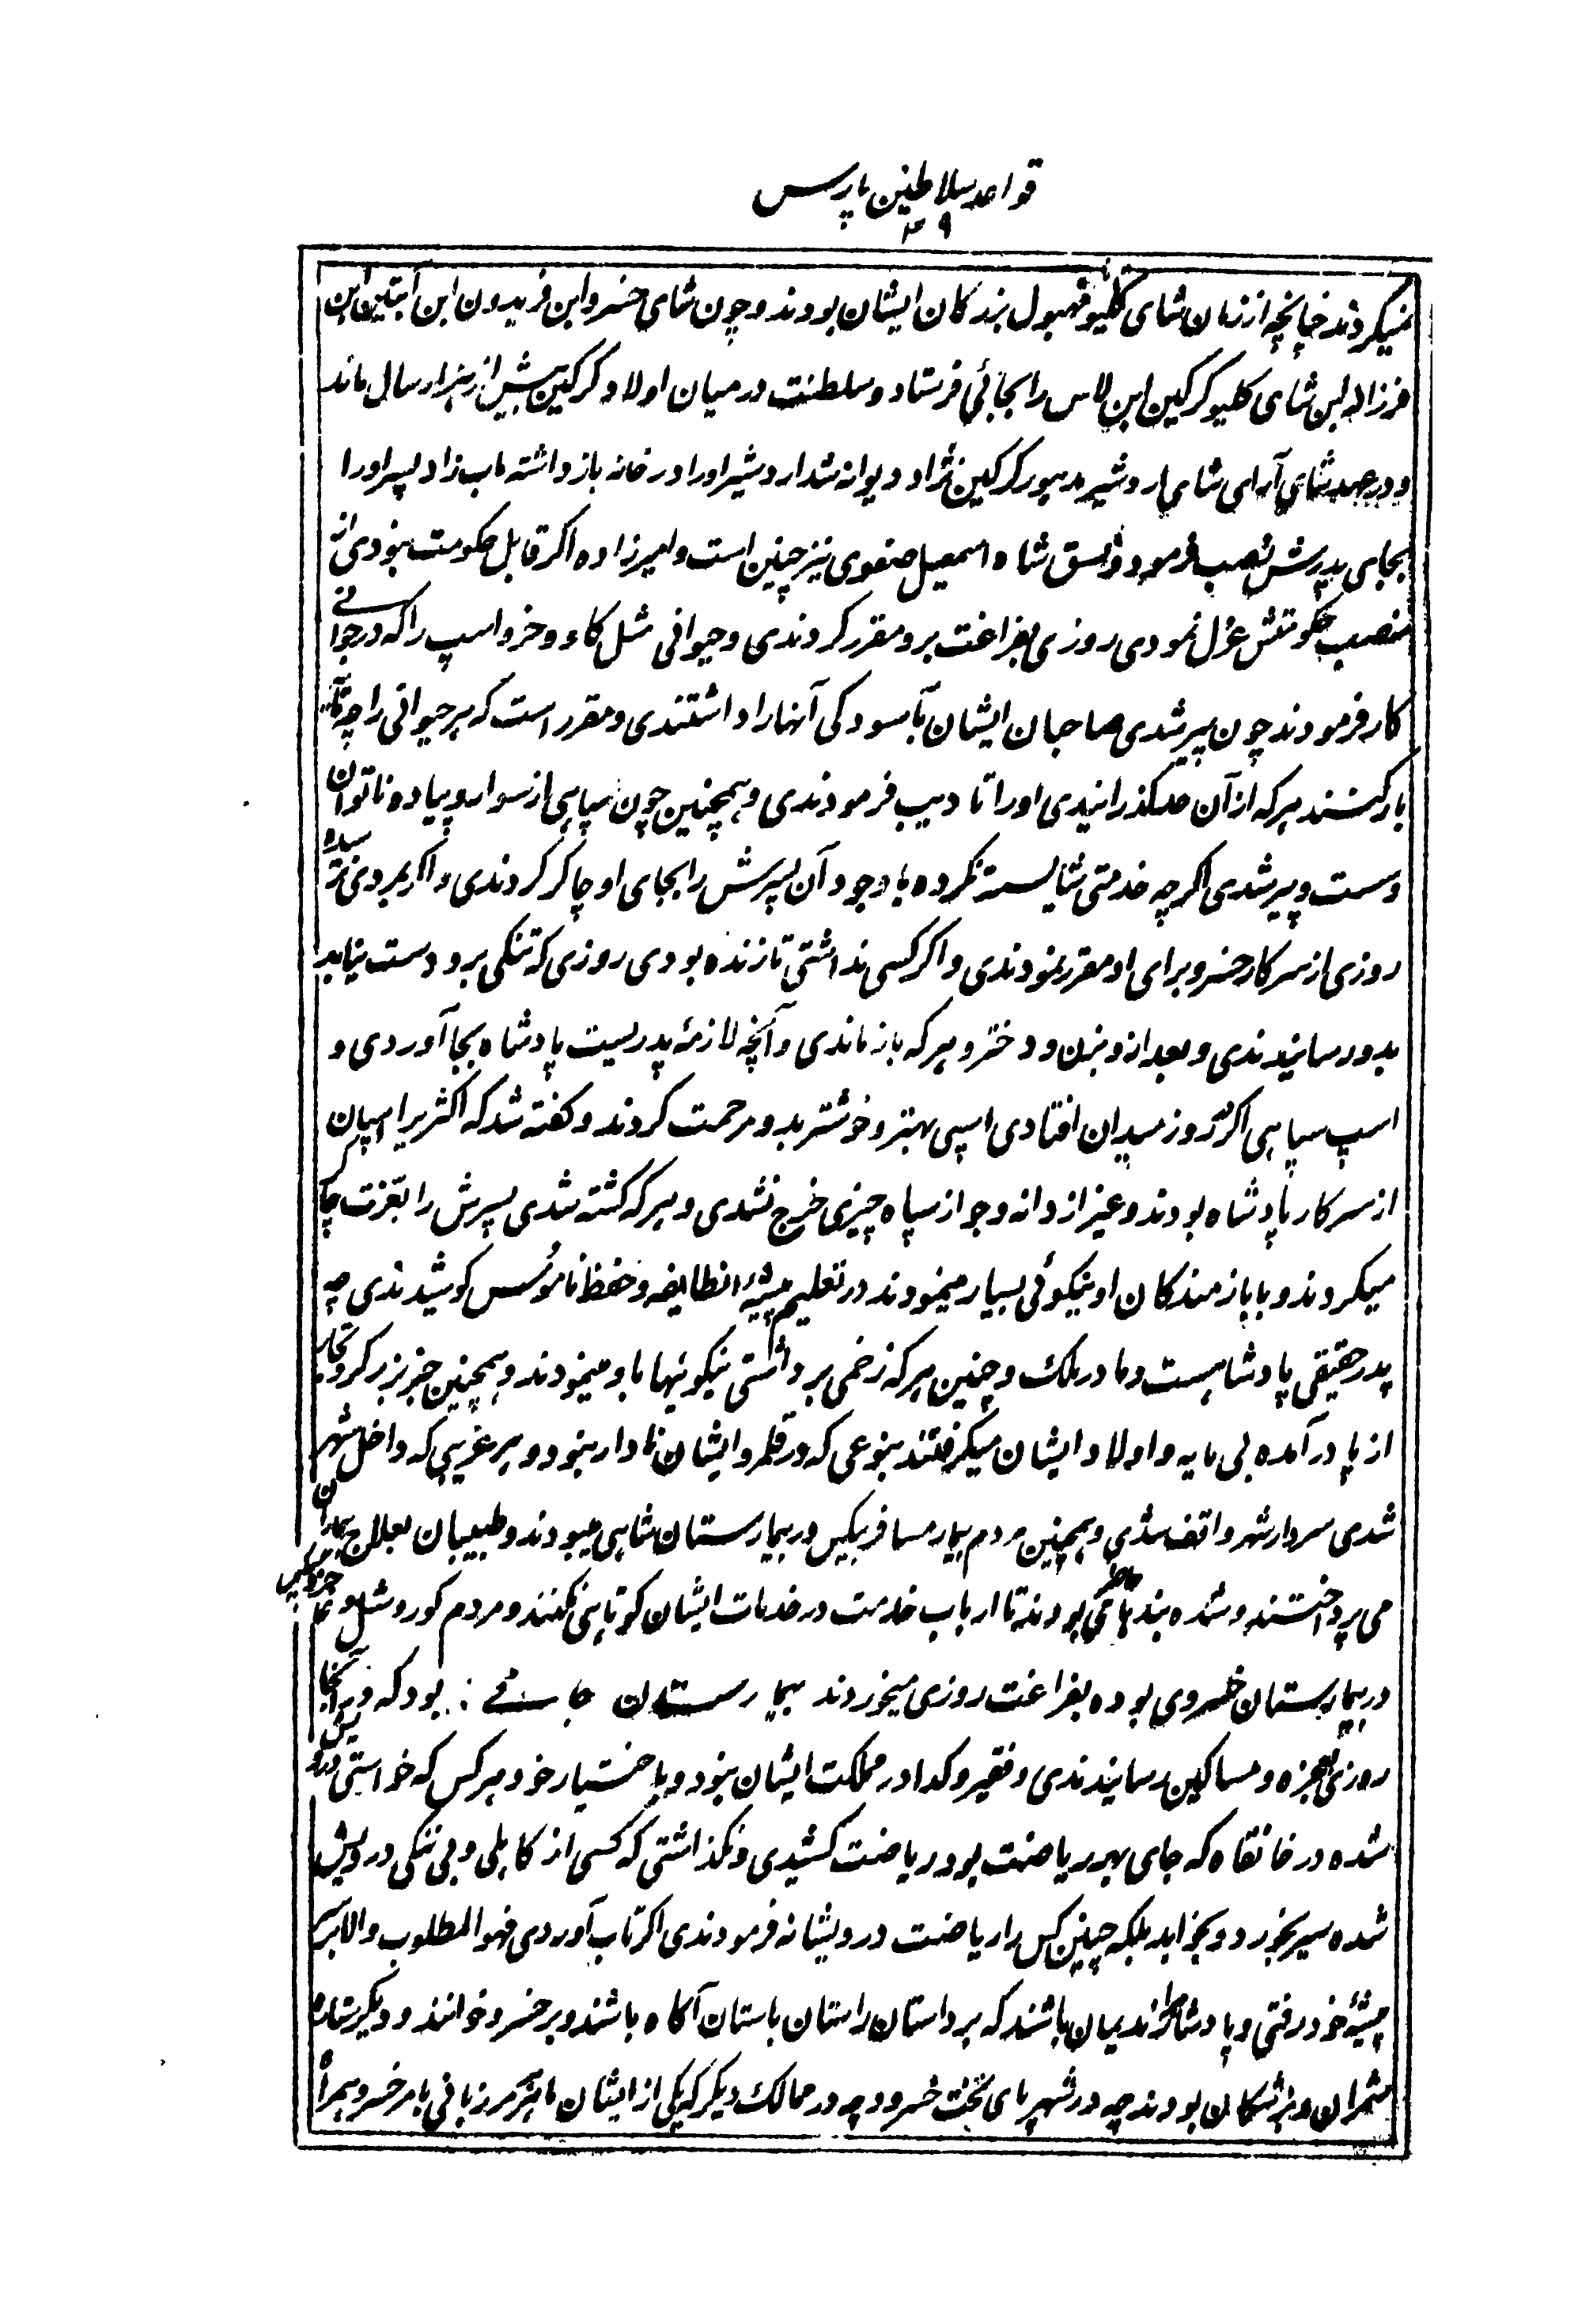 قواعد سلاطین پارس
۴۹
نمیکردند چنانچه از زمان شای کلیو تا مهبول بزرکان ایشان بودند و چون شای خسرو ابن فریدون ابن آبتین ابن
فرزاد ابن شای کلیو کرکین ابن لاس را بجائی فرستاد و سلطنت در میان اولاد کرکین بیش از هزار سال ماند
و در عهد شای آرای شای اردشیر مدهپور کرکین نژاد دیوانه شد اردشیر او را در خانه باز داشته ماب زاد پسر او را
بجای پدرش نصب فرمود و نسق شاه اسمعیل صفوی نیز چنین است و امیرزاده اکر قابل حکومت نبودی از
منصب حکومتش عزل نمودی روزی بفراغت برو مقرر کردندی و حیوانی مثل کاو و خر و اسپ را که در جوانی
کار فرمودند چون پیر شدی صاحبان ایشان بآسودکی آنها را داشتندی و مقرر است که هر حیوانی را چه مقدار
بار کنند هر که از آن حد بگذرانیدی او را تادیب فرمودندی و همچنین چون سپاهی از سوار و پیاده ناتوان
و سست و پیر شدی اکر چه خدمتی شایسته نکرده با وجود آن پسرش را بجای او چاکر کردندی و اکر بمردی نرسیده
روزی از سرکار خسرو برای او مقرر نمودندی و اکر کسی نداشتی تا زنده بودی روزی که تنکی برو دست نیابد
بدو رسانیدندی و بعد از و بزن و دختر و هر که باز ماندی و آنچه لازمهٔ پدریست پادشاه بجا آوردی و
اسپ سپاهی اکر روز میدان افتادی اسپی بهتر و خوشتر بدو مرحمت کردند و کفته شد که اکثر بر اسپان
از سرکار پادشاه بودند و غیر از دانه و جو از سپاه چیزی خرج نشدی و هر که کشته شدی پسرش را بعزت بجا
میکردند و با بازمندکان او نیکوئی بسیار مینمودند در تعلیم پیشهٔ انطایفه و حفظ ناموس کوشیدندی چه
پدر حقیقی پادشاهست و مادر ملک و چنین هر که زخمی برداشتی نیکوئیها با و مینمودند و همچنین خبر بزرکر و تجار
از پا در آمده بی مایه و اولاد ایشان میکرفتند بنوعی که در قلمرو ایشان نادار نبود و هر غریبی که داخل شهر
شدی سردار شهر واقف شدی و همچنین مردم بیمار مسافر بیکس در بیمارستان شاهی میبودند و طبیبان بعلاج بیماران
می پرداختند و شده بند ها می بودند تا ارباب خدمت در خدمات ایشان کوتاهی نکنند و مردم کور و شل و
در بیمارستان خسروی بوده بفراغت روزی میخوردند بیمارستان جائی بود که در آنجا
روزی بعجزه و مساکین رسانیدندی و فقیر و کدا در مملکت ایشان نبود و باختیار خود هر کس که خواستی درویش
شده در خانقاه که جای بهر ریاضت بود ریاضت کشیدی و نکذاشتی که کسی از کاهلی و بی ننکی درویش
شده سیر بخورد و بخوابد بلکه چنین کس را ریاضت درویشانه فرمودندی اکر تاب آوردی فهو المطلوب و الا بر سر
پیشهٔ خود رفتی و پادشاه را ندیمان باشند که بر داستان راستان باستان آکاه باشند و بر خسرو خوانند و دیکر ستاره
شمران و پزشکان بودند چه در شهر پای تخت خسرو و چه در ممالک دیکر که یکی از ایشان با هر مرزبانی بامر خسرو همراه